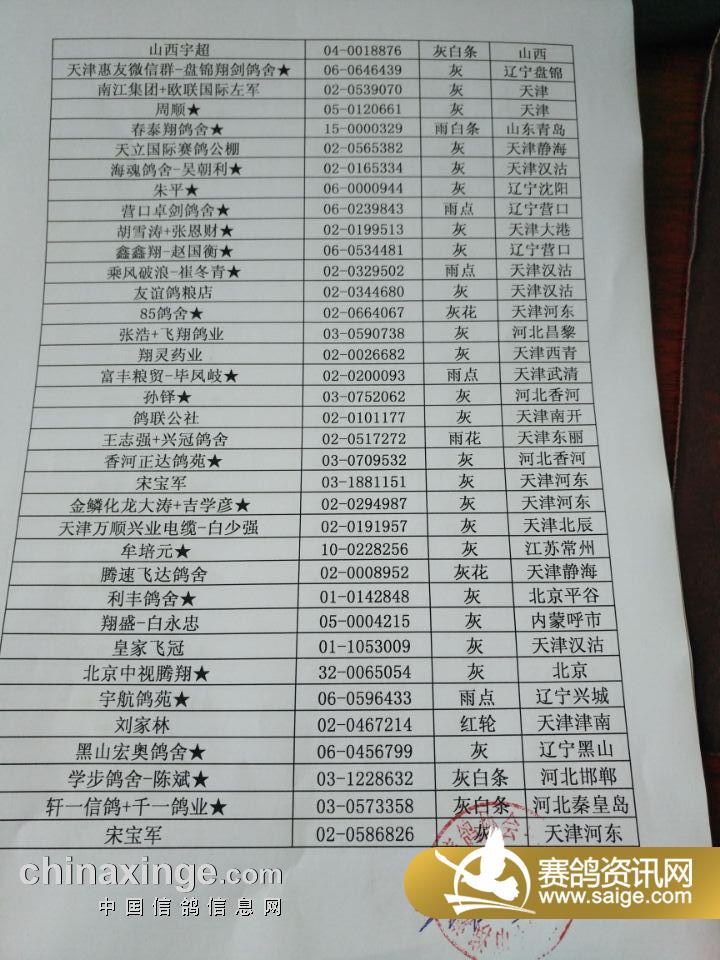 山西宇超 04-0018876 灰白条 山西
天津惠友微信群-盘锦翔剑鸽舍★ 06-0646439 灰 辽宁盘锦
南江集团+欧联国际左军 02-0539070 灰 天津
周顺★ 05-0120661 灰 天津
春泰翔鸽舍★ 15-0000329 雨白条 山东青岛
天立国际赛鸽公棚 02-0565382 灰 天津静海
海魂鸽舍-吴朝利★ 02-0165334 灰 天津汉沽
朱平★ 06-0000944 灰 辽宁沈阳
营口卓剑鸽舍★ 06-0239843 雨点 辽宁营口
胡雪涛+张恩财★ 02-0199513 灰 天津大港
鑫鑫翔-赵国衡★ 06-0534481 灰 辽宁营口
乘风破浪-崔冬青★ 02-0329502 雨点 天津汉沽
友谊鸽粮店 02-0344680 灰 天津汉沽
85鸽舍★ 02-0664067 灰花 天津河东
张浩+飞翔鸽业 03-0590738 灰 河北昌黎
翔灵药业 02-0026682 灰 天津西青
富丰粮贸-毕凤岐★ 02-0200093 雨点 天津武清
孙铎★ 03-0752062 灰 河北香河
鸽联公社 02-0101177 灰 天津南开
王志强+兴冠鸽舍 02-0517272 雨花 天津东丽
香河正达鸽苑★ 03-0709532 灰 河北香河
宋宝军 03-1881151 灰 天津河东
金鳞化龙大涛+吉学彦★ 02-0294987 灰 天津河东
天津万顺兴业电缆-白少强 02-0191957 灰 天津北辰
牟培元★ 10-0228256 灰 江苏常州
腾速飞达鸽舍 02-0008952 灰花 天津静海
利丰鸽舍★ 01-0142848 灰 北京平谷
翔盛-白永忠 05-0004215 灰 内蒙呼市
皇家飞冠 01-1053009 灰 天津汉沽
北京中视腾翔★ 32-0065054 灰 北京
宇航鸽苑★ 06-0596433 雨点 辽宁兴城
刘家林 02-0467214 红轮 天津津南
黑山宏奥鸽舍★ 06-0456799 灰 辽宁黑山
学步鸽舍-陈斌★ 03-1228632 灰白条 河北邯郸
轩一信鸽+千一鸽业★ 03-0573358 灰白条 河北秦皇岛
宋宝军 02-0586826 灰 天津河东
chinaxinge.com
中国信鸽信息网
赛鸽资讯网
www.saige.com